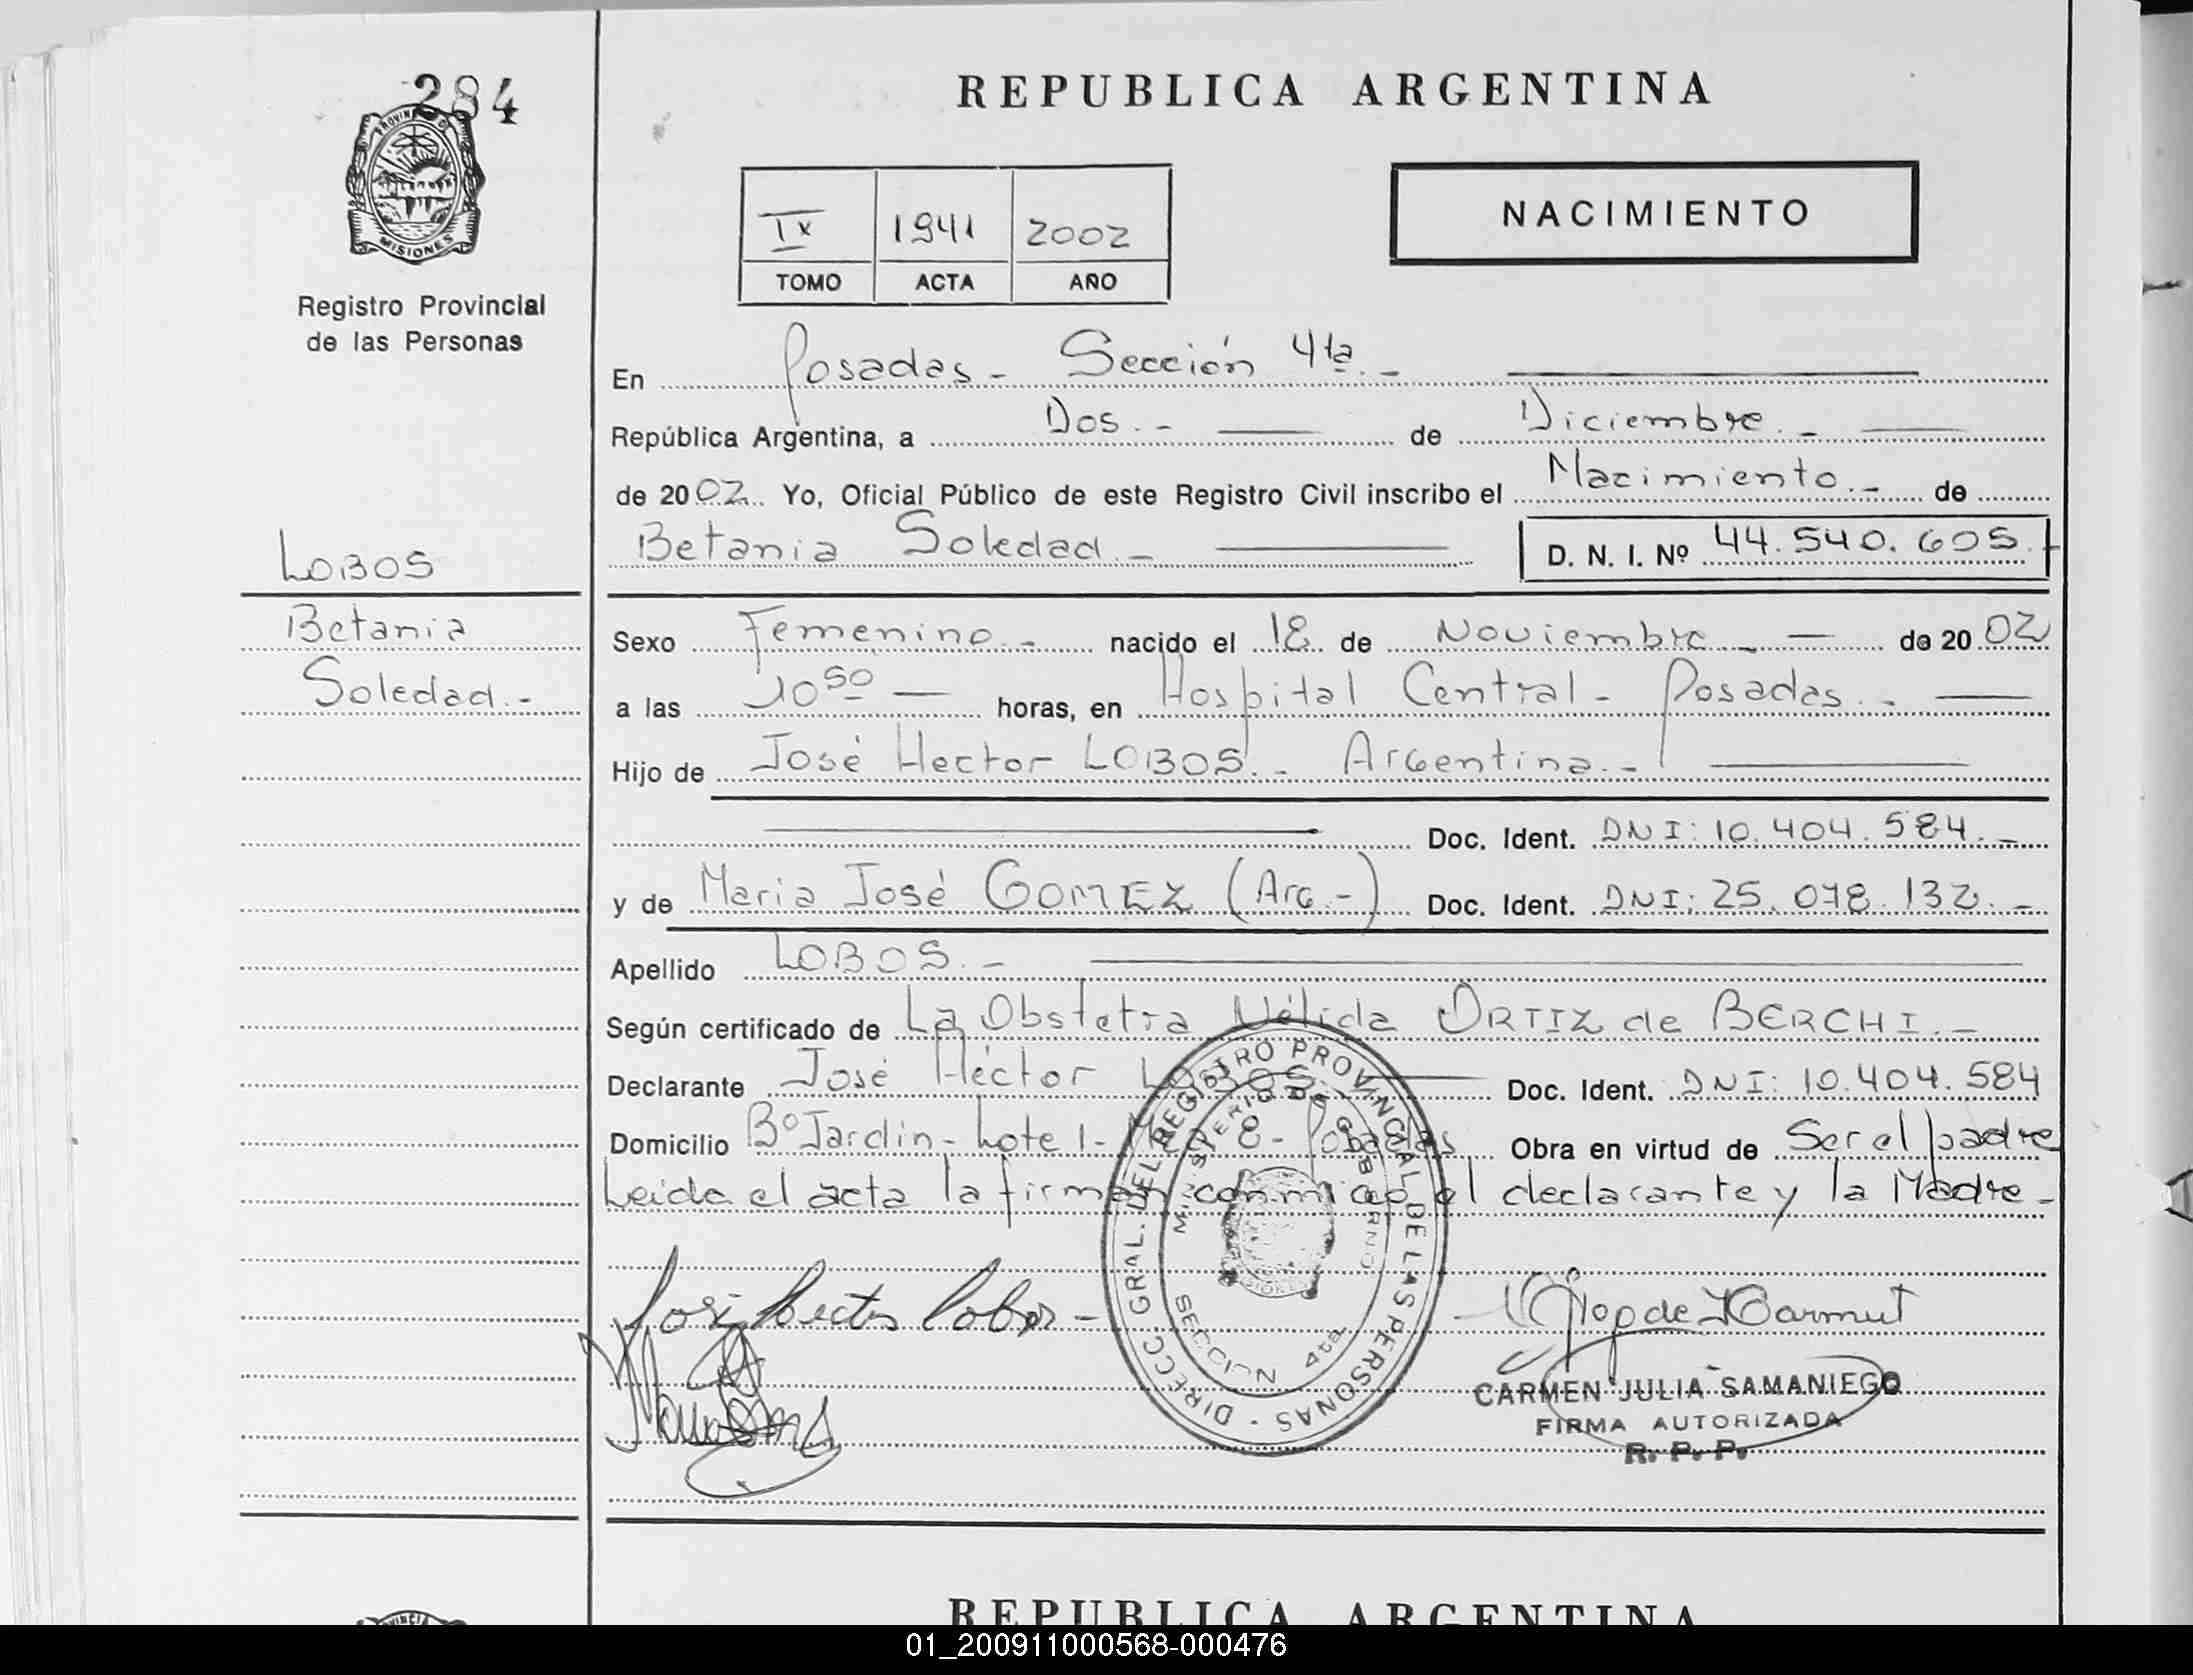 284
PROVINCIA D
MISIONES
Registro Provincial
de las Personas
LOBOS
Betania
Soledad.-
REPUBLICA ARGENTINA
IX 1941 2002
TOMO ACTA AÑO
NACIMIENTO
En Posadas - Sección 4ta.-
República Argentina, a Dos.- de Diciembre.-
de 2002. Yo, Oficial Público de este Registro Civil inscribo el Nacimiento.- de
Betania Soledad.- D. N. I. Nº 44.540.605.-
Sexo Femenino.- nacido el 18 de Noviembre.- de 2002
a las 10 50 horas, en Hospital Central - Posadas.-
Hijo de José Hector LOBOS.- Argentina.-
Doc. Ident. DNI: 10.404.584.-
y de Maria José GOMEZ (Arg.-) Doc. Ident. DNI: 25.078.132.-
Apellido LOBOS.-
Según certificado de La Obstetra Nélida ORTIZ de BERCHI.-
Declarante José Héctor LOBOS.- Doc. Ident. DNI: 10.404.584
Domicilio Bº Jardin - Lote 1 - 8 - Posadas Obra en virtud de Ser el padre
Leida el acta la firman conmigo el declarante y la Madre -
DIRECC. GRAL. DEL REGISTRO PROVINCIAL DE LAS PERSONAS
MINISTERIO DE GOBIERNO
SECCION 4ta
José Hector Lobos -
CARMEN JULIA SAMANIEGO
FIRMA AUTORIZADA
R. P. P.
REPUBLICA ARGENTINA
01_200911000568-000476